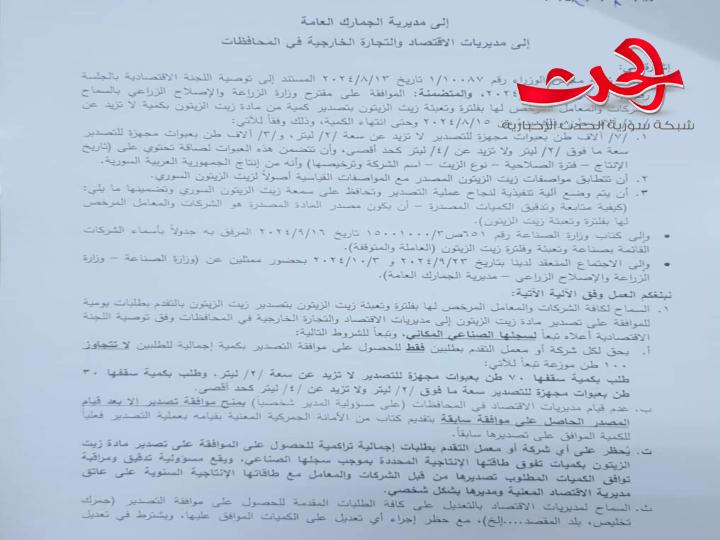 إلى مديرية الجمارك العامة
إلى مديريات الاقتصاد والتجارة الخارجية في المحافظات
الحدث
شبكة سورية الحدث الإخبارية
الوزراء رقم ١/١٠٠٨٧ تاريخ ٢٠٢٤/٨/١٣ المستند إلى توصية اللجنة الاقتصادية بالجلسة
٢٠٢٤، والمتضمنة: الموافقة على مقترح وزارة الزراعة والإصلاح الزراعي بالسماح
والمعامل المرخص لها بفلترة وتعبئة زيت الزيتون بتصدير كمية من مادة زيت الزيتون بكمية لا تزيد عن
٢٠٢٤/٨/١٥ وحتى انتهاء الكمية، وذلك وفقاً للآتي:
١. /٧/ آلاف طن بعبوات مجهزة للتصدير لا تزيد عن سعة /٢/ ليتر، و/٣/ آلاف طن بعبوات مجهزة للتصدير
سعة ما فوق /٢/ ليتر ولا تزيد عن /٤/ ليتر كحد أقصى، وأن تتضمن هذه العبوات لصاقة تحتوي على (تاريخ
الإنتاج – فترة الصلاحية – نوع الزيت – اسم الشركة وترخيصها) وأنه من إنتاج الجمهورية العربية السورية.
٢. أن تتطابق مواصفات زيت الزيتون المصدر مع المواصفات القياسية أصولاً لزيت الزيتون السوري.
٣. أن يتم وضع آلية تنفيذية لنجاح عملية التصدير وتحافظ على سمعة زيت الزيتون السوري وتضمينها ما يلي:
(كيفية متابعة وتدقيق الكميات المصدرة – أن يكون مصدر المادة المصدرة هو الشركات والمعامل المرخص
لها بفلترة وتعبئة زيت الزيتون).
• وإلى كتاب وزارة الصناعة رقم ٦٥١/ص/١٥٠٠١٠٠٠/٣ تاريخ ٢٠٢٤/٩/١٦ المرفق به جدولاً بأسماء الشركات
القائمة بصناعة وتعبئة وفلترة زيت الزيتون (العاملة والمتوقفة).
• وإلى الاجتماع المنعقد لدينا بتاريخ ٢٠٢٤/٩/٢٣ و ٢٠٢٤/١٠/٣ بحضور ممثلين عن (وزارة الصناعة – وزارة
الزراعة والإصلاح الزراعي – مديرية الجمارك العامة).
نبلغكم العمل وفق الآلية الآتية:
١. السماح لكافة الشركات والمعامل المرخص لها بفلترة وتعبئة زيت الزيتون بتصدير زيت الزيتون بالتقدم بطلبات يومية
للموافقة على تصدير مادة زيت الزيتون إلى مديريات الاقتصاد والتجارة الخارجية في المحافظات وفق توصية اللجنة
الاقتصادية أعلاه تبعاً لسجلها الصناعي المكاني، وتبعاً للشروط التالية:
أ. يحق لكل شركة أو معمل التقدم بطلبين فقط للحصول على موافقة التصدير بكمية إجمالية للطلبين لا تتجاوز
١٠٠ طن موزعة تبعاً للآتي:
طلب بكمية سقفها ٧٠ طن بعبوات مجهزة للتصدير لا تزيد عن سعة /٢/ ليتر. وطلب بكمية سقفها ٣٠
طن بعبوات مجهزة للتصدير سعة ما فوق /٢/ ليتر ولا تزيد عن /٤/ ليتر كحد أقصى.
ب. عدم قيام مديريات الاقتصاد في المحافظات (على مسؤولية المدير شخصياً) بمنح موافقة تصدير إلا بعد قيام
المصدر الحاصل على موافقة سابقة بتقديم كتاب من الأمانة الجمركية المعنية بقيامه بعملية التصدير فعلياً
للكمية الموافق على تصديرها سابقاً.
ت. يُحظر على أي شركة أو معمل التقدم بطلبات إجمالية تراكمية للحصول على الموافقة على تصدير مادة زيت
الزيتون بكميات تفوق طاقتها الإنتاجية المحددة بموجب سجلها الصناعي، ويقع مسؤولية تدقيق ومراقبة
توافق الكميات المطلوب تصديرها من قبل الشركات والمعامل مع طاقاتها الإنتاجية السنوية على عاتق
مديرية الاقتصاد المعنية ومديرها بشكل شخصي.
ث. السماح لمديريات الاقتصاد بالتعديل على كافة الطلبات المقدمة للحصول على موافقة التصدير (جمرك
تخليص، بلد المقصد....إلخ)، مع حظر إجراء أي تعديل على الكميات الموافق عليها، ويشترط في تعديل